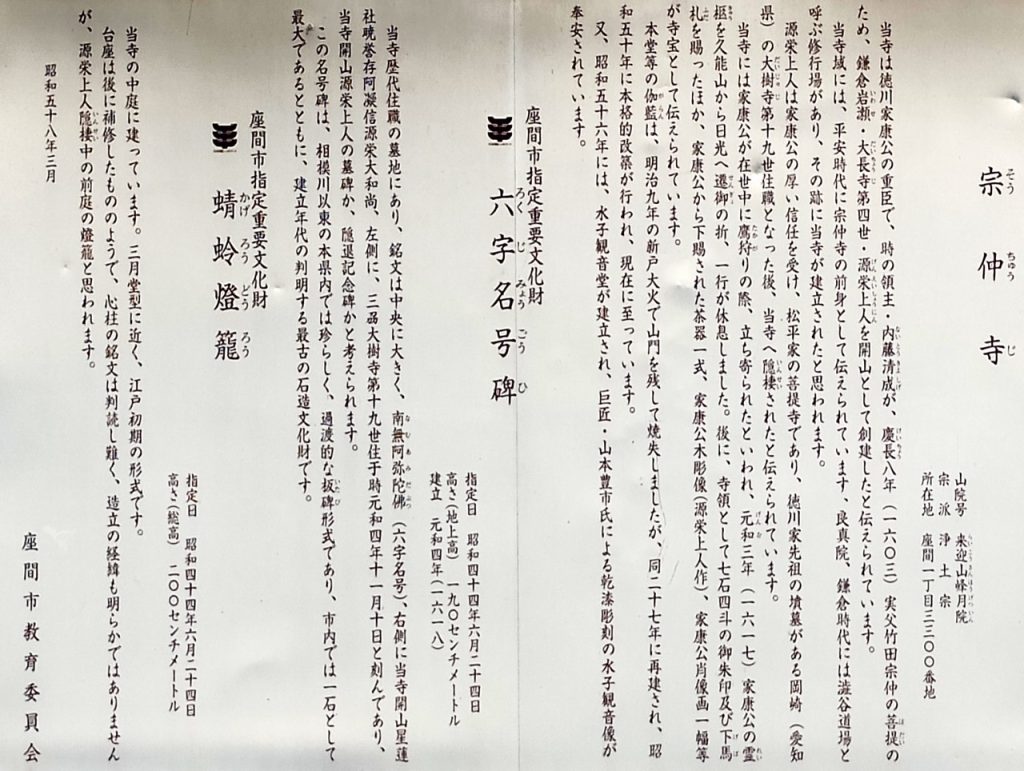 宗仲寺
そうちゅうじ
山院号　来迎山峰月院
らいこうさんほうげついん
宗派　浄土宗
所在地　座間一丁目三三〇〇番地
当寺は徳川家康公の重臣で、時の領主・内藤清成が、慶長八年（一六〇三）実父竹田宗仲の菩提の
ため、鎌倉岩瀬・大長寺第四世・源栄上人を開山として創建したと伝えられています。
当寺域には、平安時代に宗仲寺の前身として伝えられています、良真院、鎌倉時代には澁谷道場と
呼ぶ修行場があり、その跡に当寺が建立されたと思われます。
源栄上人は家康公の厚い信任を受け、松平家の菩提寺であり、徳川家先祖の墳墓がある岡崎（愛知
県）の大樹寺第十九世住職となった後、当寺へ隠棲されたと伝えられています。
当寺には家康公が在世中に鷹狩りの際、立ち寄られたといわれ、元和三年（一六一七）家康公の霊
柩を久能山から日光へ遷御の折、一行が休息しました。後に、寺領として七石四斗の御朱印及び下馬
札を賜ったほか、家康公から下賜された茶器一式、家康公木彫像（源栄上人作）、家康公肖像画一幅等
が寺宝として伝えられています。
本堂等の伽藍は、明治九年の新戸大火で山門を残して焼失しましたが、同二十七年に再建され、昭
和五十年に本格的改築が行われ、現在に至っています。
又、昭和五十六年には、水子観音堂が建立され、巨匠・山本豊市氏による乾漆彫刻の水子観音像が
奉安されています。
座間市指定重要文化財
六字名号碑
ろくじみょうごうひ
指定日　昭和四十四年六月二十四日
高さ（地上高）　一九〇センチメートル
建立　元和四年（一六一八）
当寺歴代住職の墓地にあり、銘文は中央に大きく、南無阿弥陀佛（六字名号）、右側に当寺開山星蓮
社暁誉存阿凝信源栄大和尚、左側に、三刕大樹寺第十九世住于時元和四年十一月十日と刻んであり、
当寺開山源栄上人の墓碑か、隠退記念碑かと考えられます。
この名号碑は、相模川以東の本県内では珍らしく、過渡的な板碑形式であり、市内では一石として
最大であるとともに、建立年代の判明する最古の石造文化財です。
座間市指定重要文化財
蜻蛉燈籠
かげろうどうろう
指定日　昭和四十四年六月二十四日
高さ（総高）　二〇〇センチメートル
当寺の中庭に建っています。三月堂型に近く、江戸初期の形式です。
台座は後に補修したもののようで、心柱の銘文は判読し難く、造立の経緯も明らかではありません
が、源栄上人隠棲中の前庭の燈籠と思われます。
昭和五十八年三月
座間市教育委員会